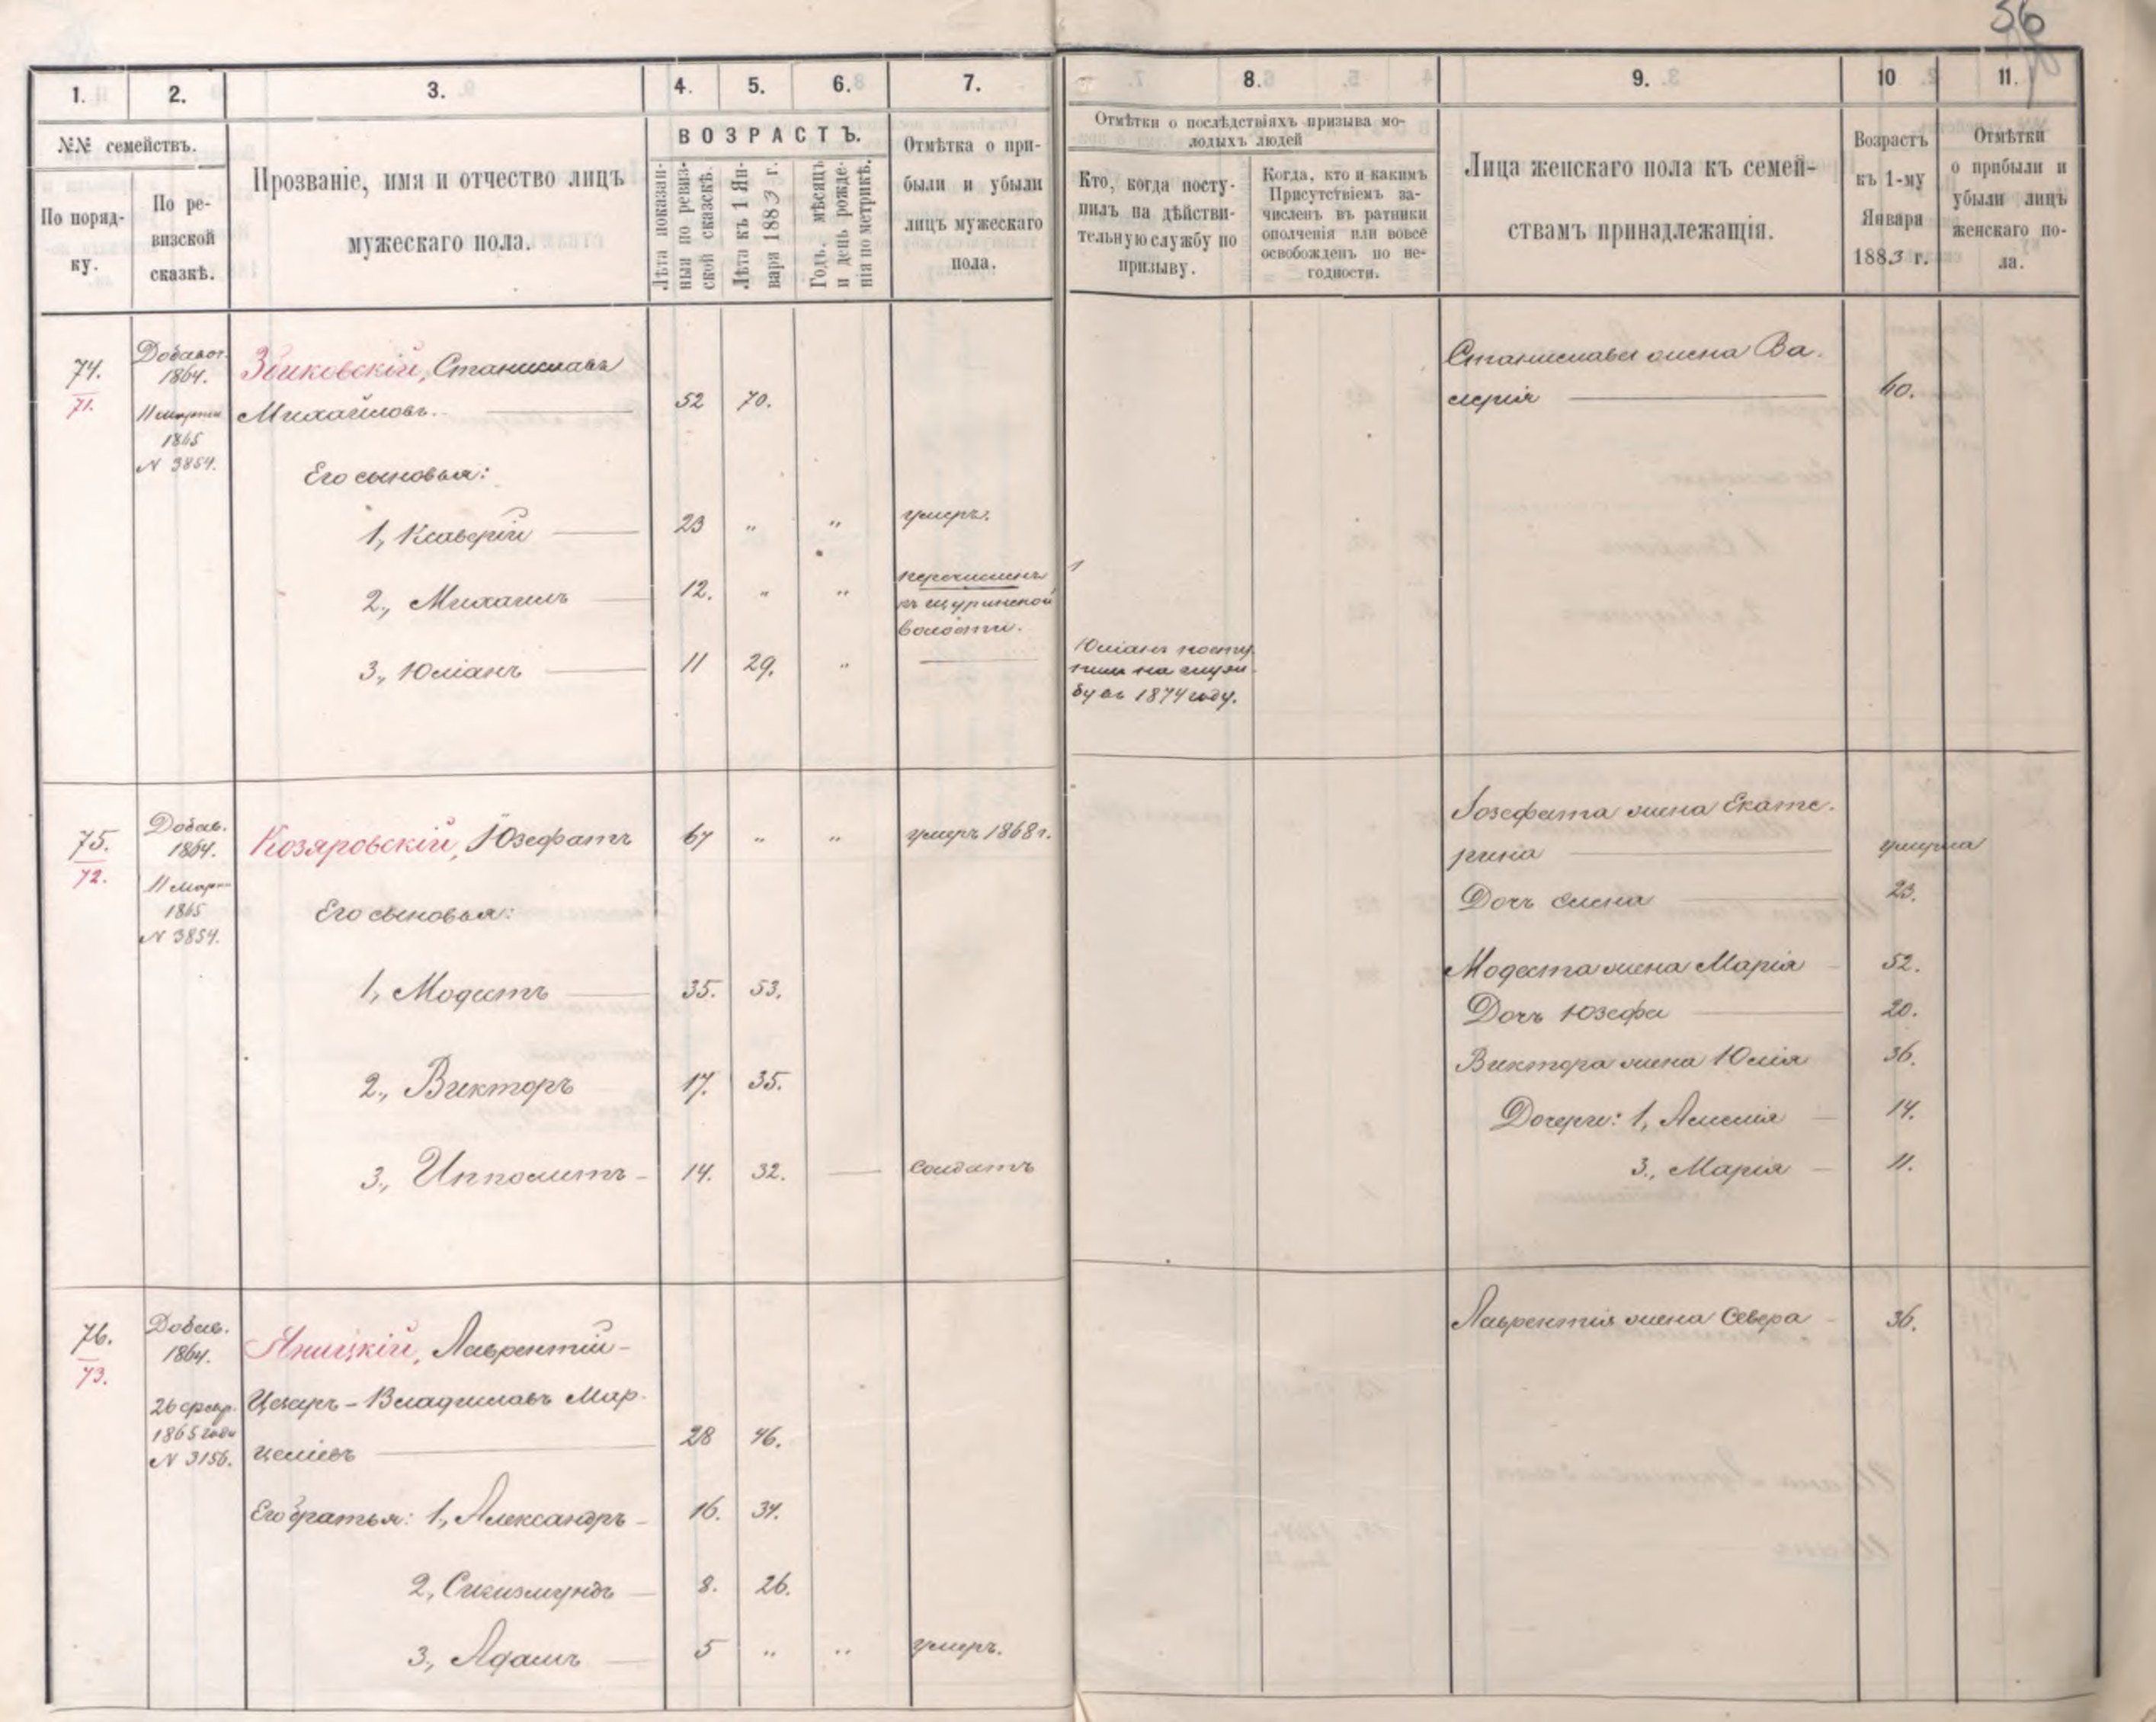 56
1.
2.
3.
4.
5.
6.
7.
8.
9.
10
11.
№№ семействъ.
По поряд-
ку.
По ре-
визской
сказкѣ.
Прозваніе, имя и отчество лицъ
мужескаго пола.
ВОЗРАСТЪ.
Лѣта показан-
ныя по ревиз-
ской сказкѣ.
Лѣта къ 1 Ян-
варя 1883 г.
Годъ, мѣсяцъ
и день рожде-
нія по метрикѣ.
Отмѣтка о при-
были и убыли
лицъ мужескаго
пола.
Отмѣтки о послѣдствіяхъ призыва мо-
лодыхъ людей
Кто, когда посту-
пилъ на дѣйстви-
тельную службу по
призыву.
Когда, кто и какимъ
Присутствіемъ за-
численъ въ ратники
ополченія или вовсе
освобожденъ по не-
годности.
Лица женскаго пола къ семей-
ствамъ принадлежащія.
Возрастъ
къ 1-му
Января
1883 г.
Отмѣтки
о прибыли и
убыли лицъ
женскаго по-
ла.
74.
71.
Добавоч.
1864.
11 марта
1865
N 3854.
Збиковскій, Станиславъ
Михайловъ. 52 70.
Станислава жена Ва-
лерія 60.
Его сыновья:
1, Ксаверій 23 " " умеръ.
2., Михаилъ 12. " " перечисленъ
къ Щуринской
волости.
3., Юліанъ 11 29. "
Юліанъ посту-
пилъ на служ-
бу въ 1874 году.
75.
72.
Добав.
1864.
11 март
1865
N 3854.
Козяровскій, Юзефатъ 67 " " умеръ 1868 г.
Іозефата жена Екате-
рина умерла
Его сыновья:
Дочь Елена 23.
1, Модестъ 35. 53.
Модеста жена Марія 52.
Дочь Юзефа 20.
2., Викторъ 17. 35.
Виктора жена Юлія 36.
Дочери: 1, Амелія 14.
3., Ипполитъ 14. 32. солдатъ
3., Марія 11.
76.
73.
Добав.
1864.
26 февр.
1865 года
N 3156.
Яницкій, Лаврентій-
Цезарь-Владиславъ Мар-
целіевъ 28 46.
Лаврентія жена Севера 36.
Его братья: 1., Александръ 16. 34.
2, Сигизмундъ 8. 26.
3., Адамъ 5 " " умеръ.